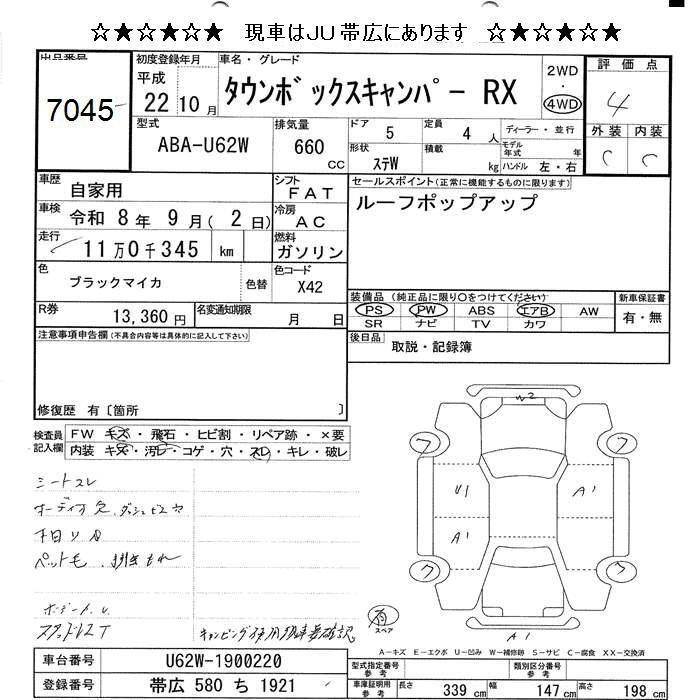 ☆★☆★☆★ 現車はJU帯広にあります ☆★☆★☆★
出品番号 7045
初度登録年月 平成 22 10 月
車名・グレード タウンボックスキャンパー RX
2WD ・ 4WD
評価点 4
外装 内装
C C
型式 ABA-U62W
排気量 660 CC
ドア 5 定員 4 人
形状 ステW 積載 kg
ディーラー・並行
モデル年式 年
ハンドル 左・右
車歴 自家用
シフト FAT
車検 令和 8 年 9 月 ( 2 日)
冷房 AC
走行 11 万 0 千 345 km
燃料 ガソリン
色 ブラックマイカ 色替
色コード X42
R券 13,360 円
名変通知期限 月 日
セールスポイント(正常に機能するものに限ります)
ルーフポップアップ
装備品(純正品に限り○をつけてください)
PS PW ABS エアB AW
SR ナビ TV カワ
新車保証書
有・無
後日品 取説・記録簿
注意事項申告欄(不具合内容等は具体的に記入して下さい)
修復歴 有〔箇所 〕
検査員記入欄
FW キズ・飛石・ヒビ割・リペア跡・×要
内装 キズ・汚レ・コゲ・穴・スレ・キレ・破レ
シートスレ
オーディオ欠、ダッシュビス穴
ペット毛
スタッドレスT
キャンピング使用 現車要確認
W2
フ フ
U1 A1
A1
フ フ
スペア
A1
A-キズ E-エクボ U-凹み W-補修跡 S-サビ C-腐食 XX-交換済
車台番号 U62W-1900220
登録番号 帯広 580 ち 1921
型式指定番号 参考
類別区分番号 参考
車庫証明用 参考
長さ 339 cm 幅 147 cm 高さ 198 cm